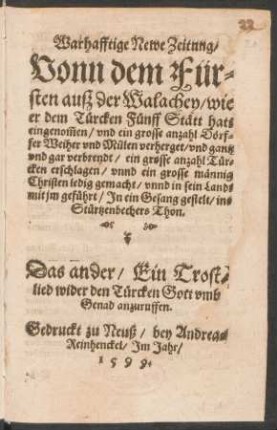 22
Warhafftige Newe Zeitung/
Vonn dem Für-
sten auß der Walachey/wie
er dem Türcken Fünff Stätt hats
eingenom̃en/ vnd ein grosse anzahl Dörf-
fer Weiher vnd Mülen verherget/vnd gantz
vnd gar verbrendt/ ein grosse anzahl Tür-
cken erschlagten/ vnnd ein grosse männig
Christen ledig gemacht/ vnnd in sein Lands
mit jm geführt/ In ein Gesang gestelt/ ins
Stürtzenbechers Thon.
Das ander/ Ein Trost-
lied wider den Türcken Gott vmb
Genad anzuruffen.
Gedruckt zu Neuß/ bey Andreas
Reinhenckel/ Im Jahr/
1599.